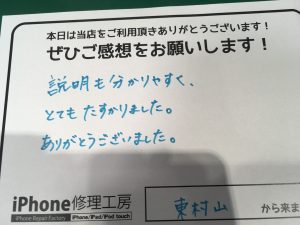 本日は当店をご利用頂きありがとうございます!
ぜひご感想をお願いします!
説明も分かりやすく、
とてもたすかりました。
ありがとうございました。
iPhone修理工房
iPhone Repair Factory iPhone/iPad/iPod touch
東村山 から来ま